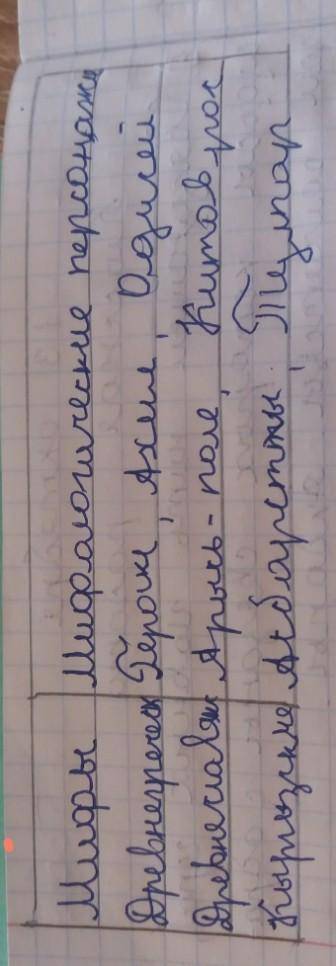 Мифы Мифологические персонажи
Древнегреческ Герои, Ахил, Одисей
Древнеславян Арысь-поле, Китоврос
Кыргызские Акбарсты, Тулпар